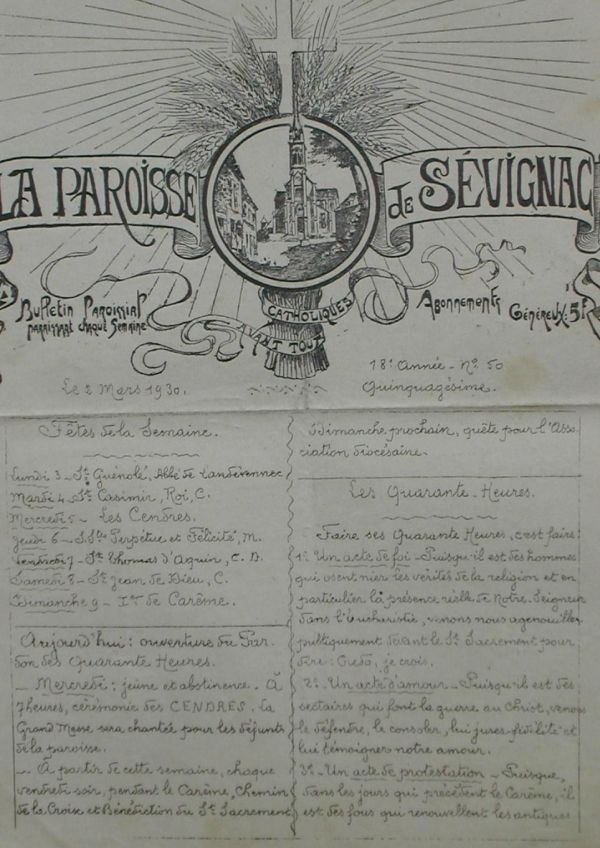 LA PAROISSE de SÉVIGNAC
Bulletin Paroissial
paraissant chaque Semaine
CATHOLIQUES
AVANT TOUT
Abonnements
Généreux: 5f
Le 2 Mars 1930.
18e Année - No 50
Quinquagésime.
Fêtes de la Semaine.
Lundi 3 - St Guénolé, Abbé de Landévennec
Mardi 4 - St Casimir, Roi, C.
Mercredi 5 - Les Cendres.
Jeudi 6 - Stes Perpétue et Félicité, M.
Vendredi 7 - St Thomas d'Aquin, C. D.
Samedi 8 - St Jean de Dieu, C.
Dimanche 9 - Ier de Carême.
Aujourd'hui: ouverture du Par-
don des Quarante Heures.
- Mercredi: jeûne et abstinence. À
7 heures, cérémonie des CENDRES. La
Grand Messe sera chantée pour les défunts
de la paroisse.
- À partir de cette semaine, chaque
vendredi soir, pendant le Carême, Chemin
de la Croix et Bénédiction du St Sacrement
Dimanche prochain, quête pour l'Asso-
ciation diocésaine.
Les Quarante-Heures.
Faire ses Quarante Heures, c'est faire:
1o Un acte de foi - Puisqu'il est des hommes
qui osent nier les vérités de la religion et en
particulier la présence réelle de Notre-Seigneur
dans l'Eucharistie, venons nous agenouiller
publiquement devant le St Sacrement pour
dire: Credo, je crois.
2o - Un acte d'amour - Puisqu'il est des
sectaires qui font la guerre au Christ, venons
le défendre, le consoler, lui jurer fidélité et
lui témoigner notre amour.
3o - Un acte de protestation - Puisque,
dans les jours qui précèdent le Carême, il
est des fous qui renouvellent les antiques